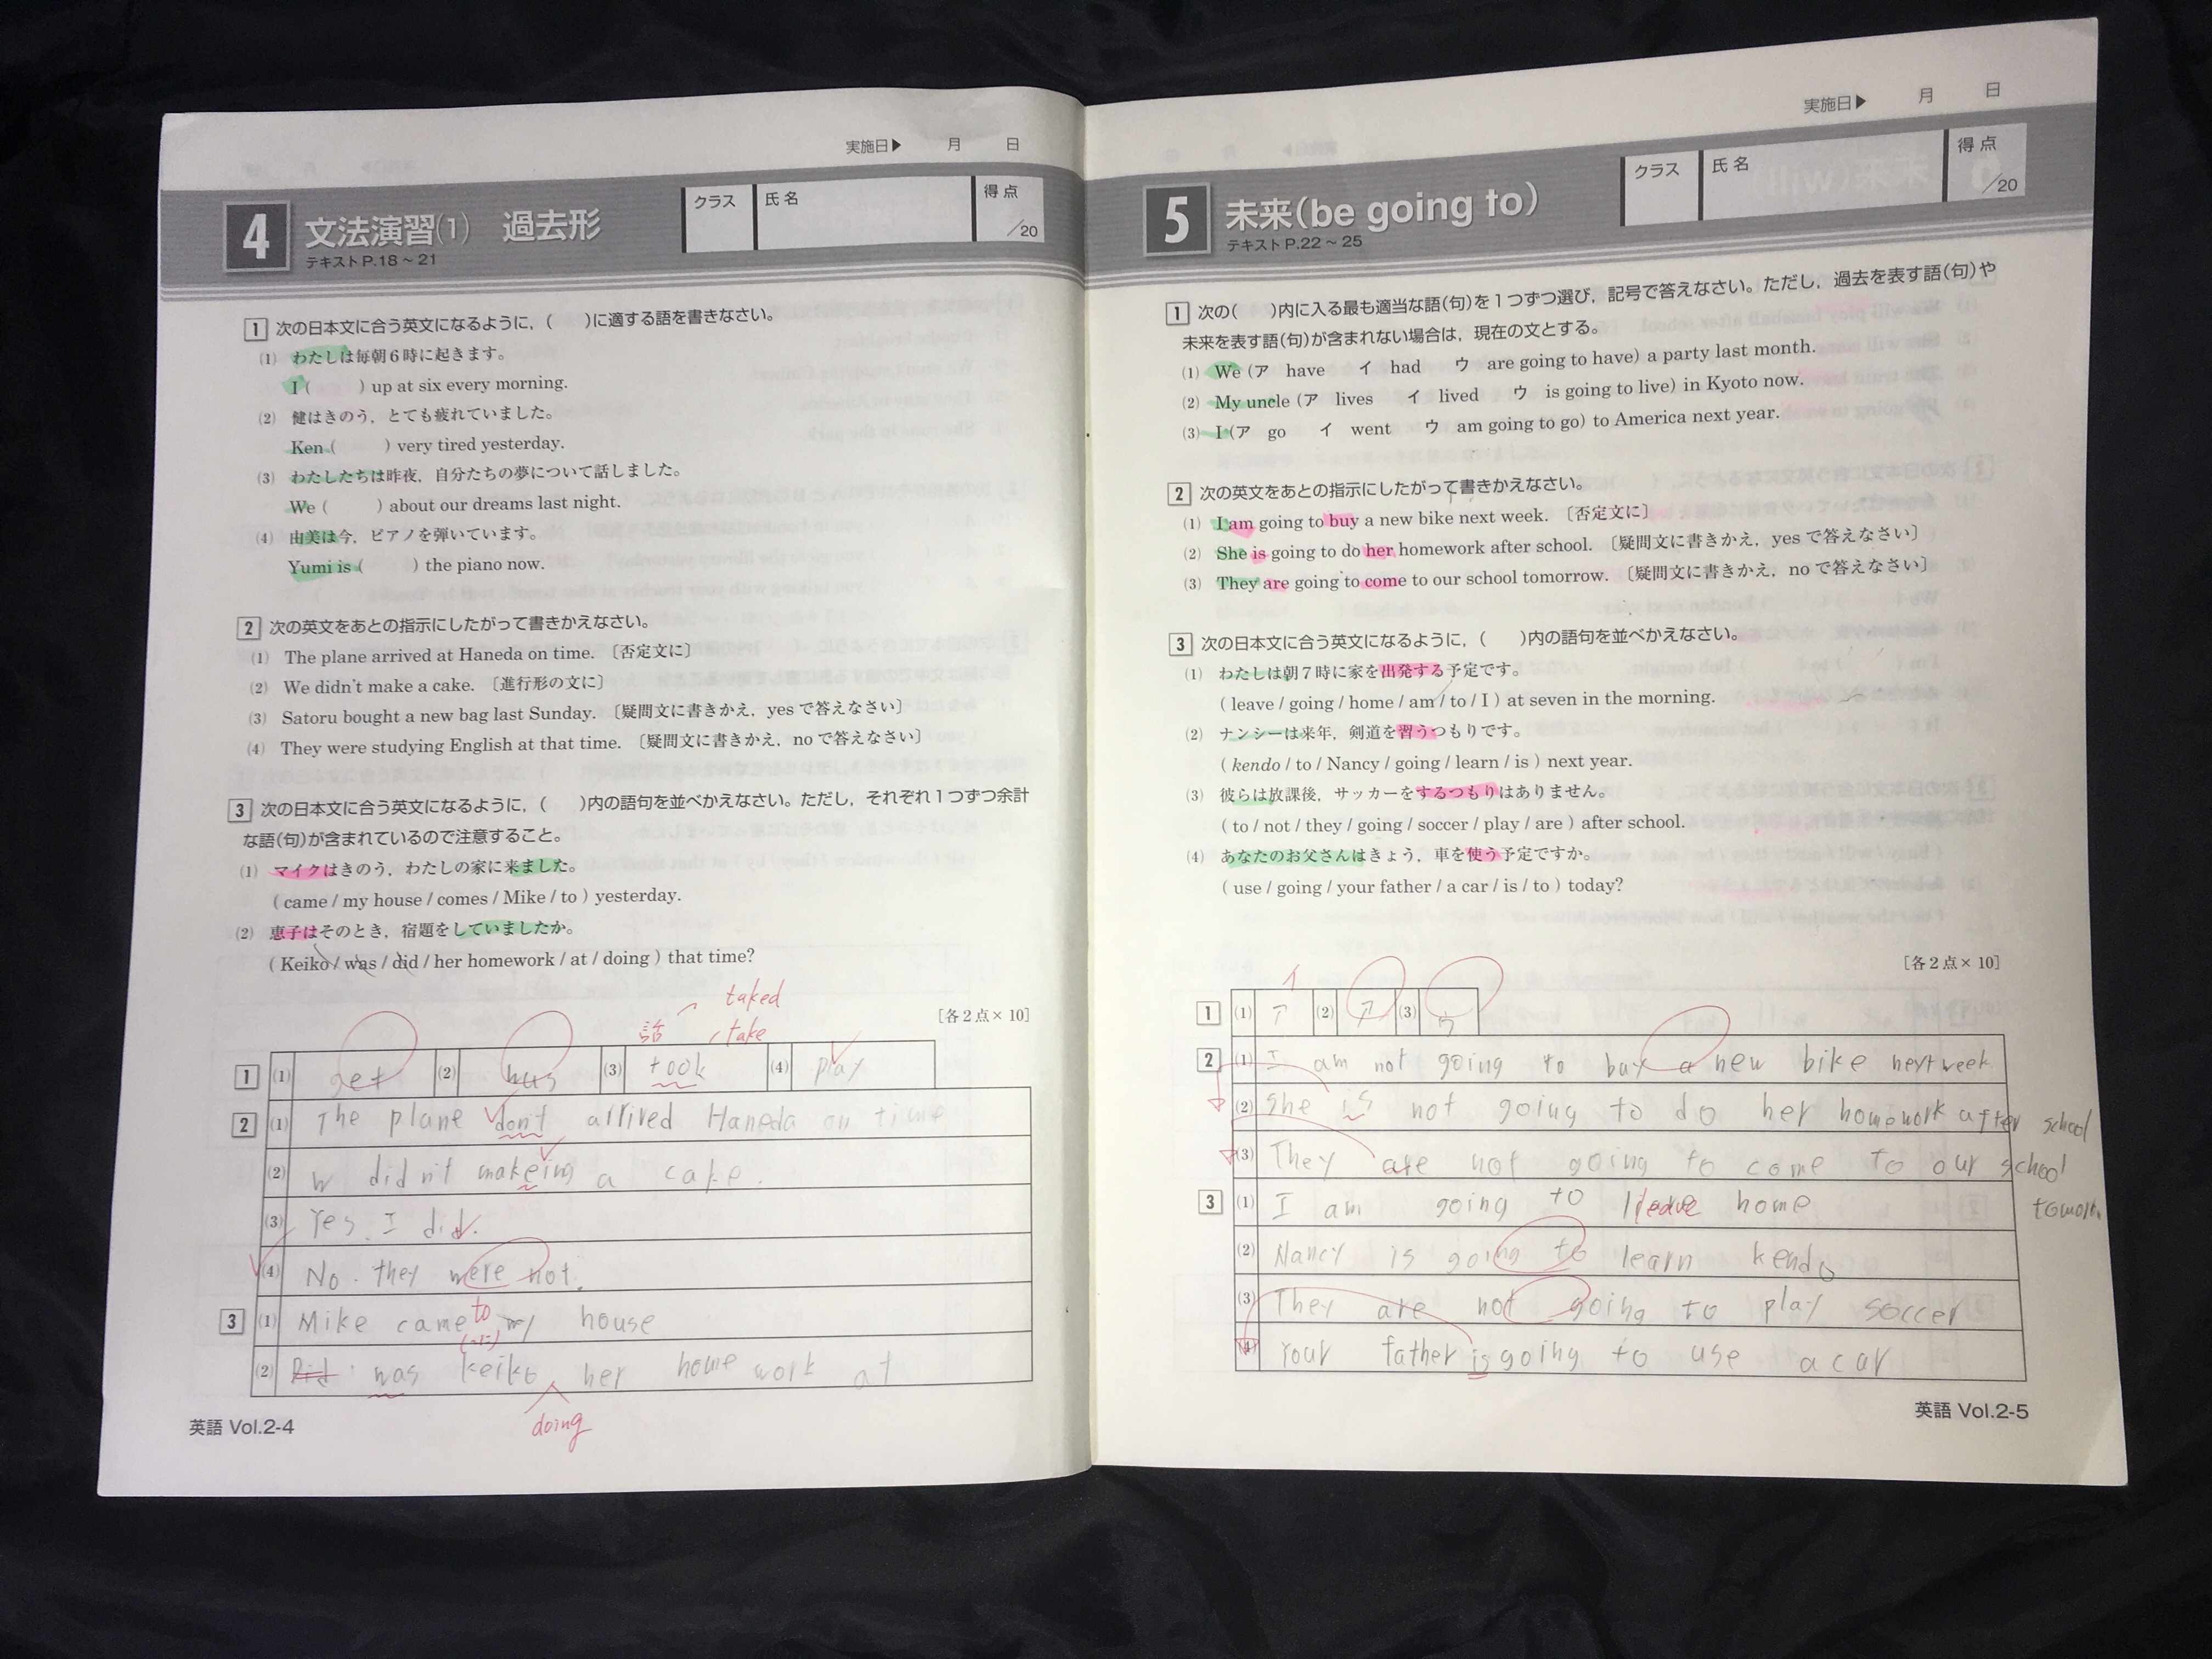 実施日▶ 月 日
4 文法演習⑴ 過去形
テキストP.18～21
クラス 氏名 得点 /20
1 次の日本文に合う英文になるように，( )に適する語を書きなさい。
⑴ わたしは毎朝6時に起きます。
I ( ) up at six every morning.
⑵ 健はきのう，とても疲れていました。
Ken ( ) very tired yesterday.
⑶ わたしたちは昨夜，自分たちの夢について話しました。
We ( ) about our dreams last night.
⑷ 由美は今，ピアノを弾いています。
Yumi is ( ) the piano now.
2 次の英文をあとの指示にしたがって書きかえなさい。
⑴ The plane arrived at Haneda on time. 〔否定文に〕
⑵ We didn't make a cake. 〔進行形の文に〕
⑶ Satoru bought a new bag last Sunday. 〔疑問文に書きかえ，yesで答えなさい〕
⑷ They were studying English at that time. 〔疑問文に書きかえ，noで答えなさい〕
3 次の日本文に合う英文になるように，( )内の語句を並べかえなさい。ただし，それぞれ1つずつ余計
な語(句)が含まれているので注意すること。
⑴ マイクはきのう，わたしの家に来ました。
( came / my house / comes / Mike / to ) yesterday.
⑵ 恵子はそのとき，宿題をしていましたか。
( Keiko / was / did / her homework / at / doing ) that time?
taked
話 take
[各2点×10]
1 ⑴ get ⑵ ⑶ took ⑷ play
2 ⑴ The plane don't arrived Haneda on time
⑵ w didn't makeing a cake.
⑶ Yes. I did.
⑷ No. they were not.
3 ⑴ Mike came to my house
⑵ Did was keiko her home work at
doing
英語 Vol.2-4
実施日▶ 月 日
5 未来(be going to)
テキストP.22～25
クラス 氏名 得点 /20
1 次の( )内に入る最も適当な語(句)を1つずつ選び，記号で答えなさい。ただし，過去を表す語(句)や
未来を表す語(句)が含まれない場合は，現在の文とする。
⑴ We (ア have イ had ウ are going to have) a party last month.
⑵ My uncle (ア lives イ lived ウ is going to live) in Kyoto now.
⑶ I (ア go イ went ウ am going to go) to America next year.
2 次の英文をあとの指示にしたがって書きかえなさい。
⑴ I am going to buy a new bike next week. 〔否定文に〕
⑵ She is going to do her homework after school. 〔疑問文に書きかえ，yesで答えなさい〕
⑶ They are going to come to our school tomorrow. 〔疑問文に書きかえ，noで答えなさい〕
3 次の日本文に合う英文になるように，( )内の語句を並べかえなさい。
⑴ わたしは朝7時に家を出発する予定です。
( leave / going / home / am / to / I ) at seven in the morning.
⑵ ナンシーは来年，剣道を習うつもりです。
( kendo / to / Nancy / going / learn / is ) next year.
⑶ 彼らは放課後，サッカーをするつもりはありません。
( to / not / they / going / soccer / play / are ) after school.
⑷ あなたのお父さんはきょう，車を使う予定ですか。
( use / going / your father / a car / is / to ) today?
[各2点×10]
イ
1 ⑴ ア ⑵ ア ⑶ ウ
2 ⑴ I am not going to buy a new bike next week
⑵ She is not going to do her homework after school
⑶ They are not going to come to our school
3 ⑴ I am going to leave home
⑵ Nancy is going to learn kendo
⑶ They are not going to play soccer
⑷ Your father is going to use a car
英語 Vol.2-5